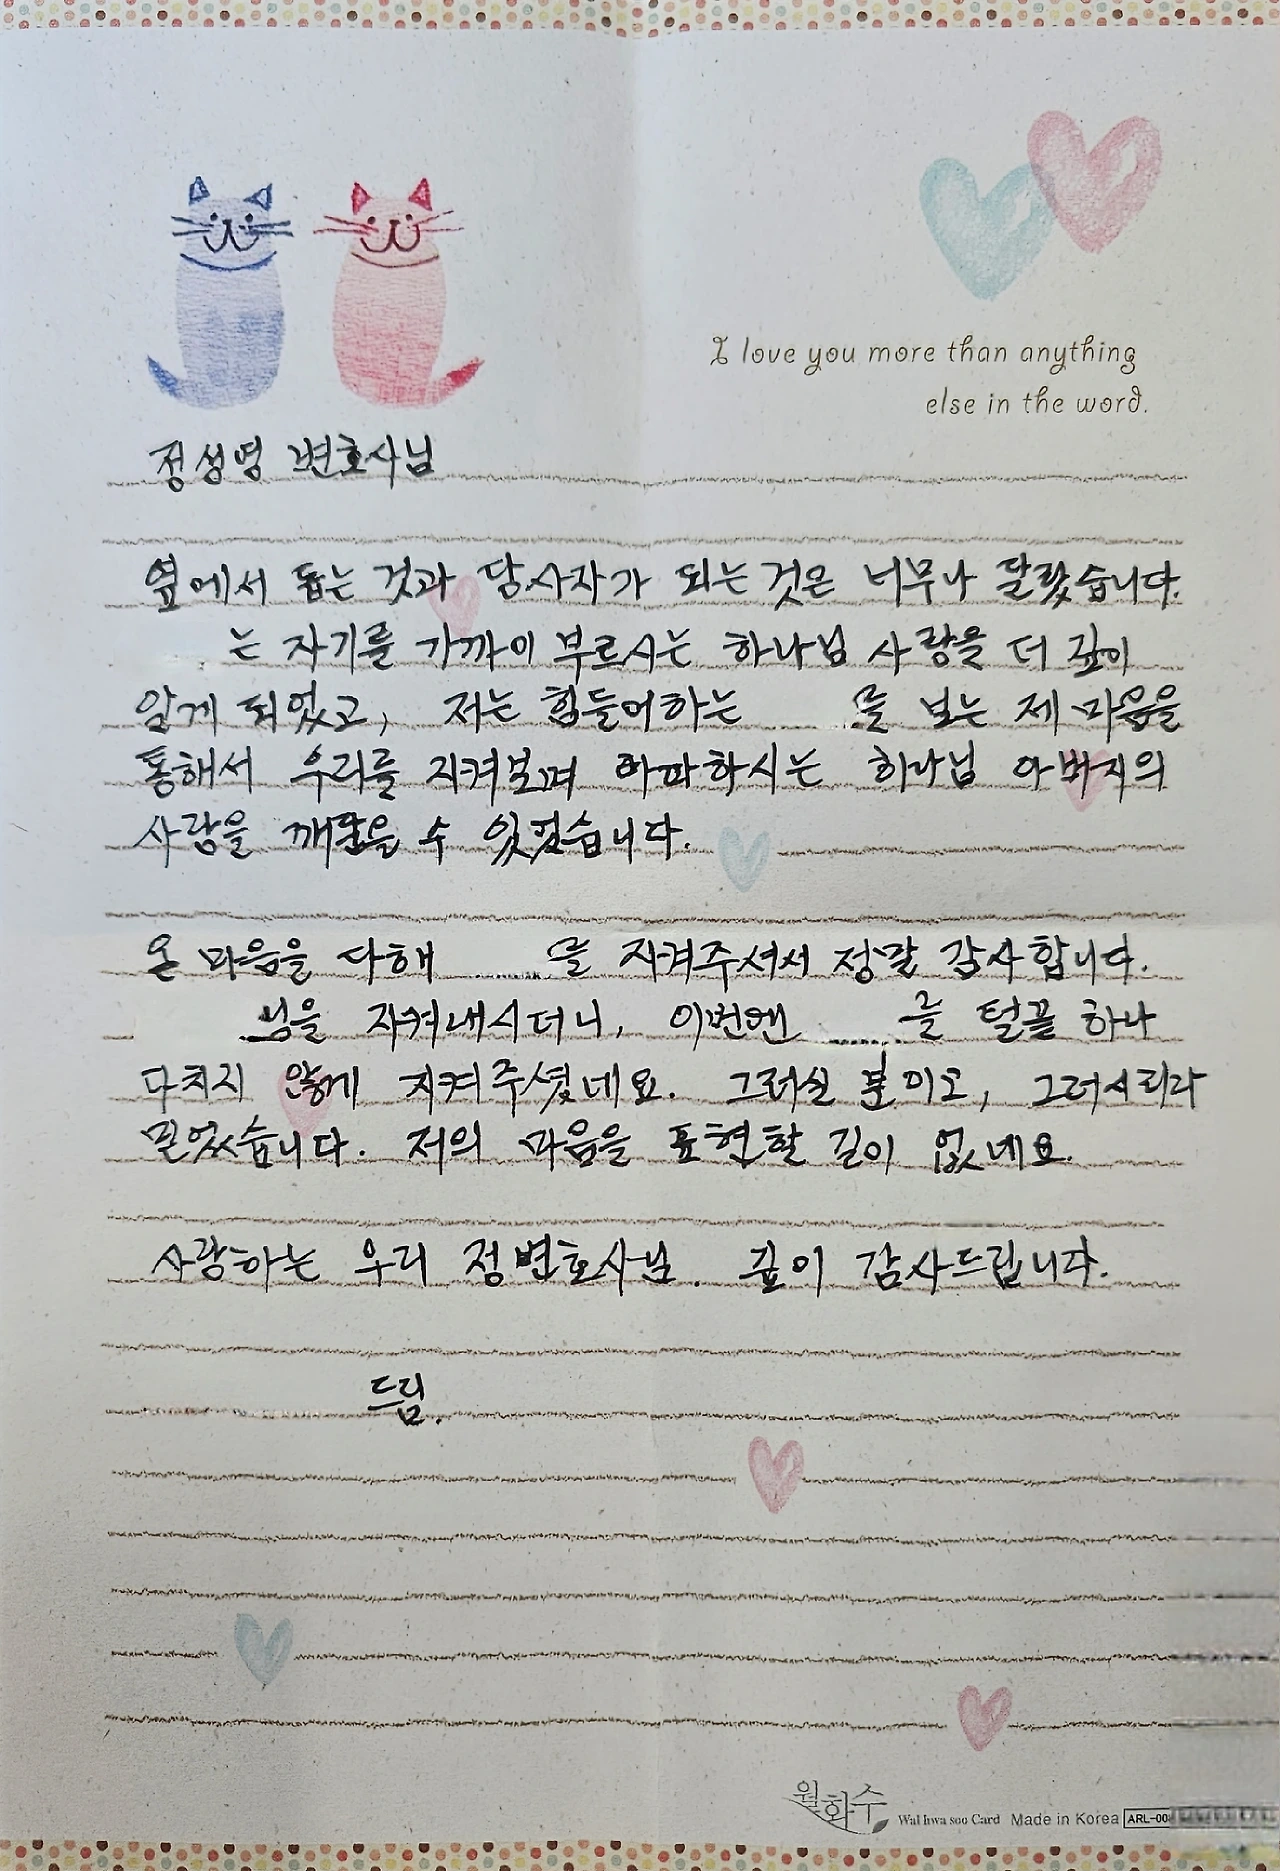 I love you more than anything
else in the word.
정성명 변호사님
옆에서 돕는 것과 당사자가 되는 것은 너무나 달랐습니다.
는 자기를 가까이 부르시는 하나님 사랑을 더 깊이
알게 되었고, 저는 힘들어하는 를 보는 제 마음을
통해서 우리를 지켜보며 아파하시는 하나님 아버지의
사랑을 깨달을 수 있었습니다.
온 마음을 다해 를 지켜주셔서 정말 감사합니다.
님을 지켜내시더니, 이번엔 를 털끝 하나
다치지 않게 지켜주셨네요. 그러실 분이고, 그러시리라
믿었습니다. 저의 마음을 표현할 길이 없네요.
사랑하는 우리 정변호사님. 깊이 감사드립니다.
드림.
월화수 Wal hwa soo Card Made in Korea